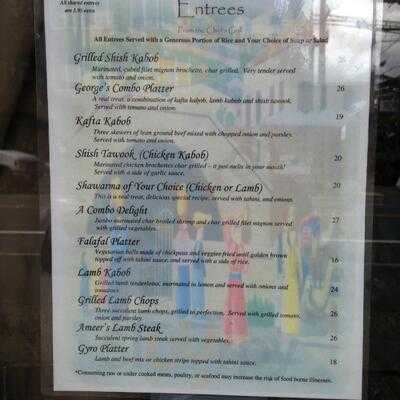 All shared entrees
are 3.95 extra
Entrees
From the Chef's Grill
All Entrees Served with a Generous Portion of Rice and Your Choice of Soup or Salad
Grilled Shish Kabob
Marinated, cubed filet mignon brochette, char grilled. Very tender served
with tomato and onion.
George's Combo Platter 26
A real treat, a combination of kafta kabob, lamb kabob and shish tawook.
Served with tomato and onion.
Kafta Kabob 19
Three skewers of lean ground beef mixed with chopped onion and parsley.
Served with tomato and onion.
Shish Tawook (Chicken Kabob) 20
Marinated chicken brochettes char grilled – it just melts in your mouth!
Served with a side of garlic sauce.
Shawarma of Your Choice (Chicken or Lamb) 20
This is a real treat, delicious special recipe, served with tahini, and onions.
A Combo Delight 27
Jumbo marinated char broiled shrimp and char grilled filet mignon served
with grilled vegetables.
Falafal Platter 16
Vegetarian balls made of chickpeas and veggies fried until golden brown
topped off with tahini sauce, and served with a side of rice.
Lamb Kabob 24
Grilled lamb tenderloins, marinated in lemon and served with onions and
tomatoes.
Grilled Lamb Chops 26
Three succulent lamb chops, grilled to perfection. Served with grilled tomato,
onion and parsley.
Ameer's Lamb Steak 26
Succulent spring lamb steak served with vegetables.
Gyro Platter 18
Lamb and beef mix or chicken strips topped with tahini sauce.
*Consuming raw or under cooked meats, poultry, or seafood may increase the risk of food borne illnesses.